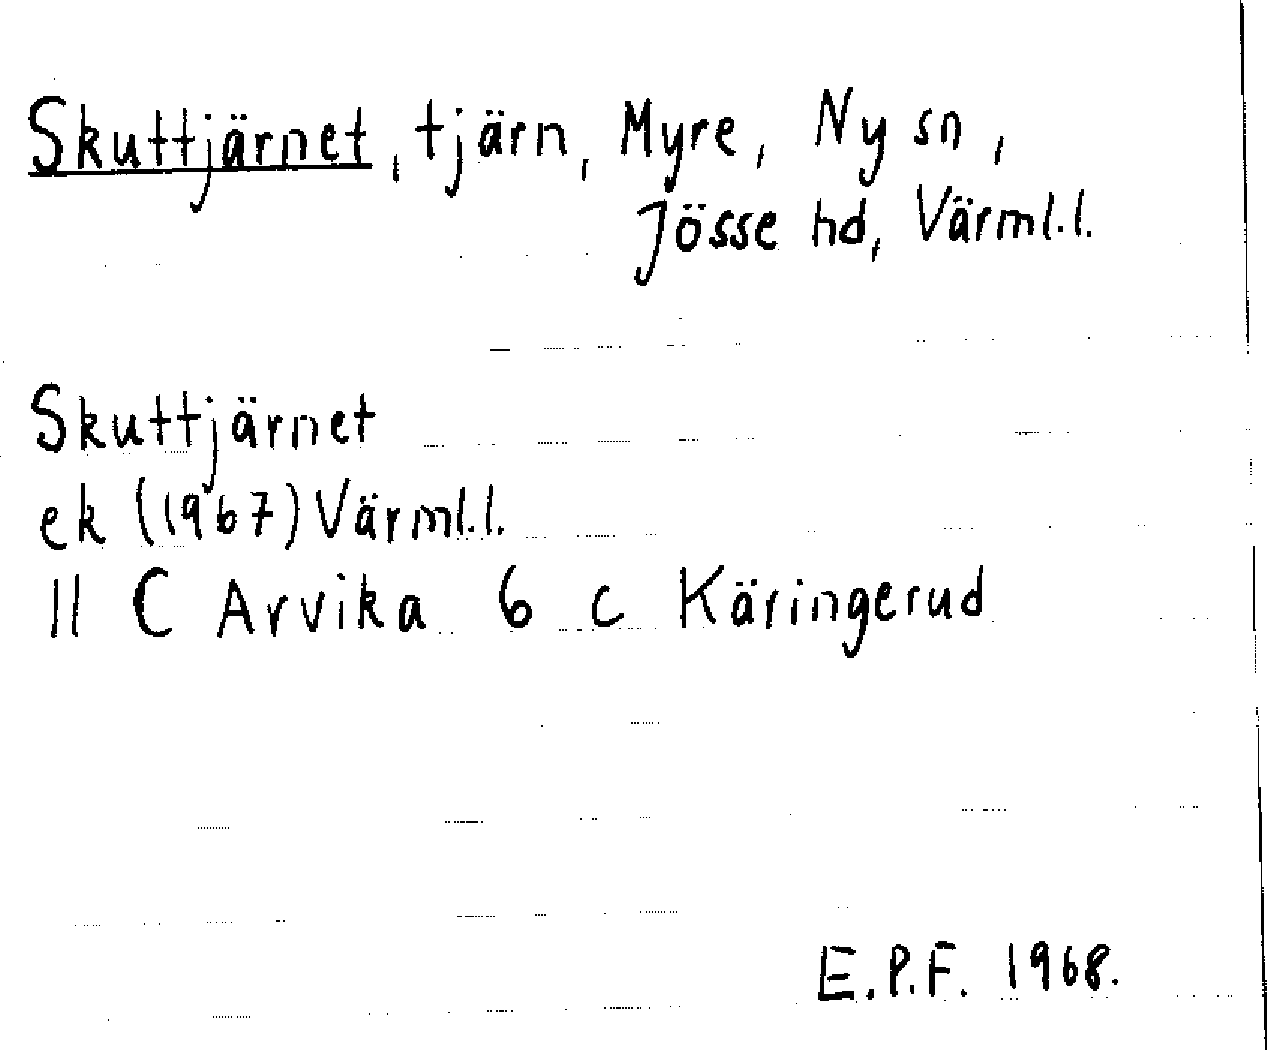 Skuttjärnet, tjärn, Myre, Ny sn,
Jösse hd, Värml.l.
Skuttjärnet
ek (1967) Värml.l.
11 C Arvika 6 c Käringerud
E.P.F. 1968.